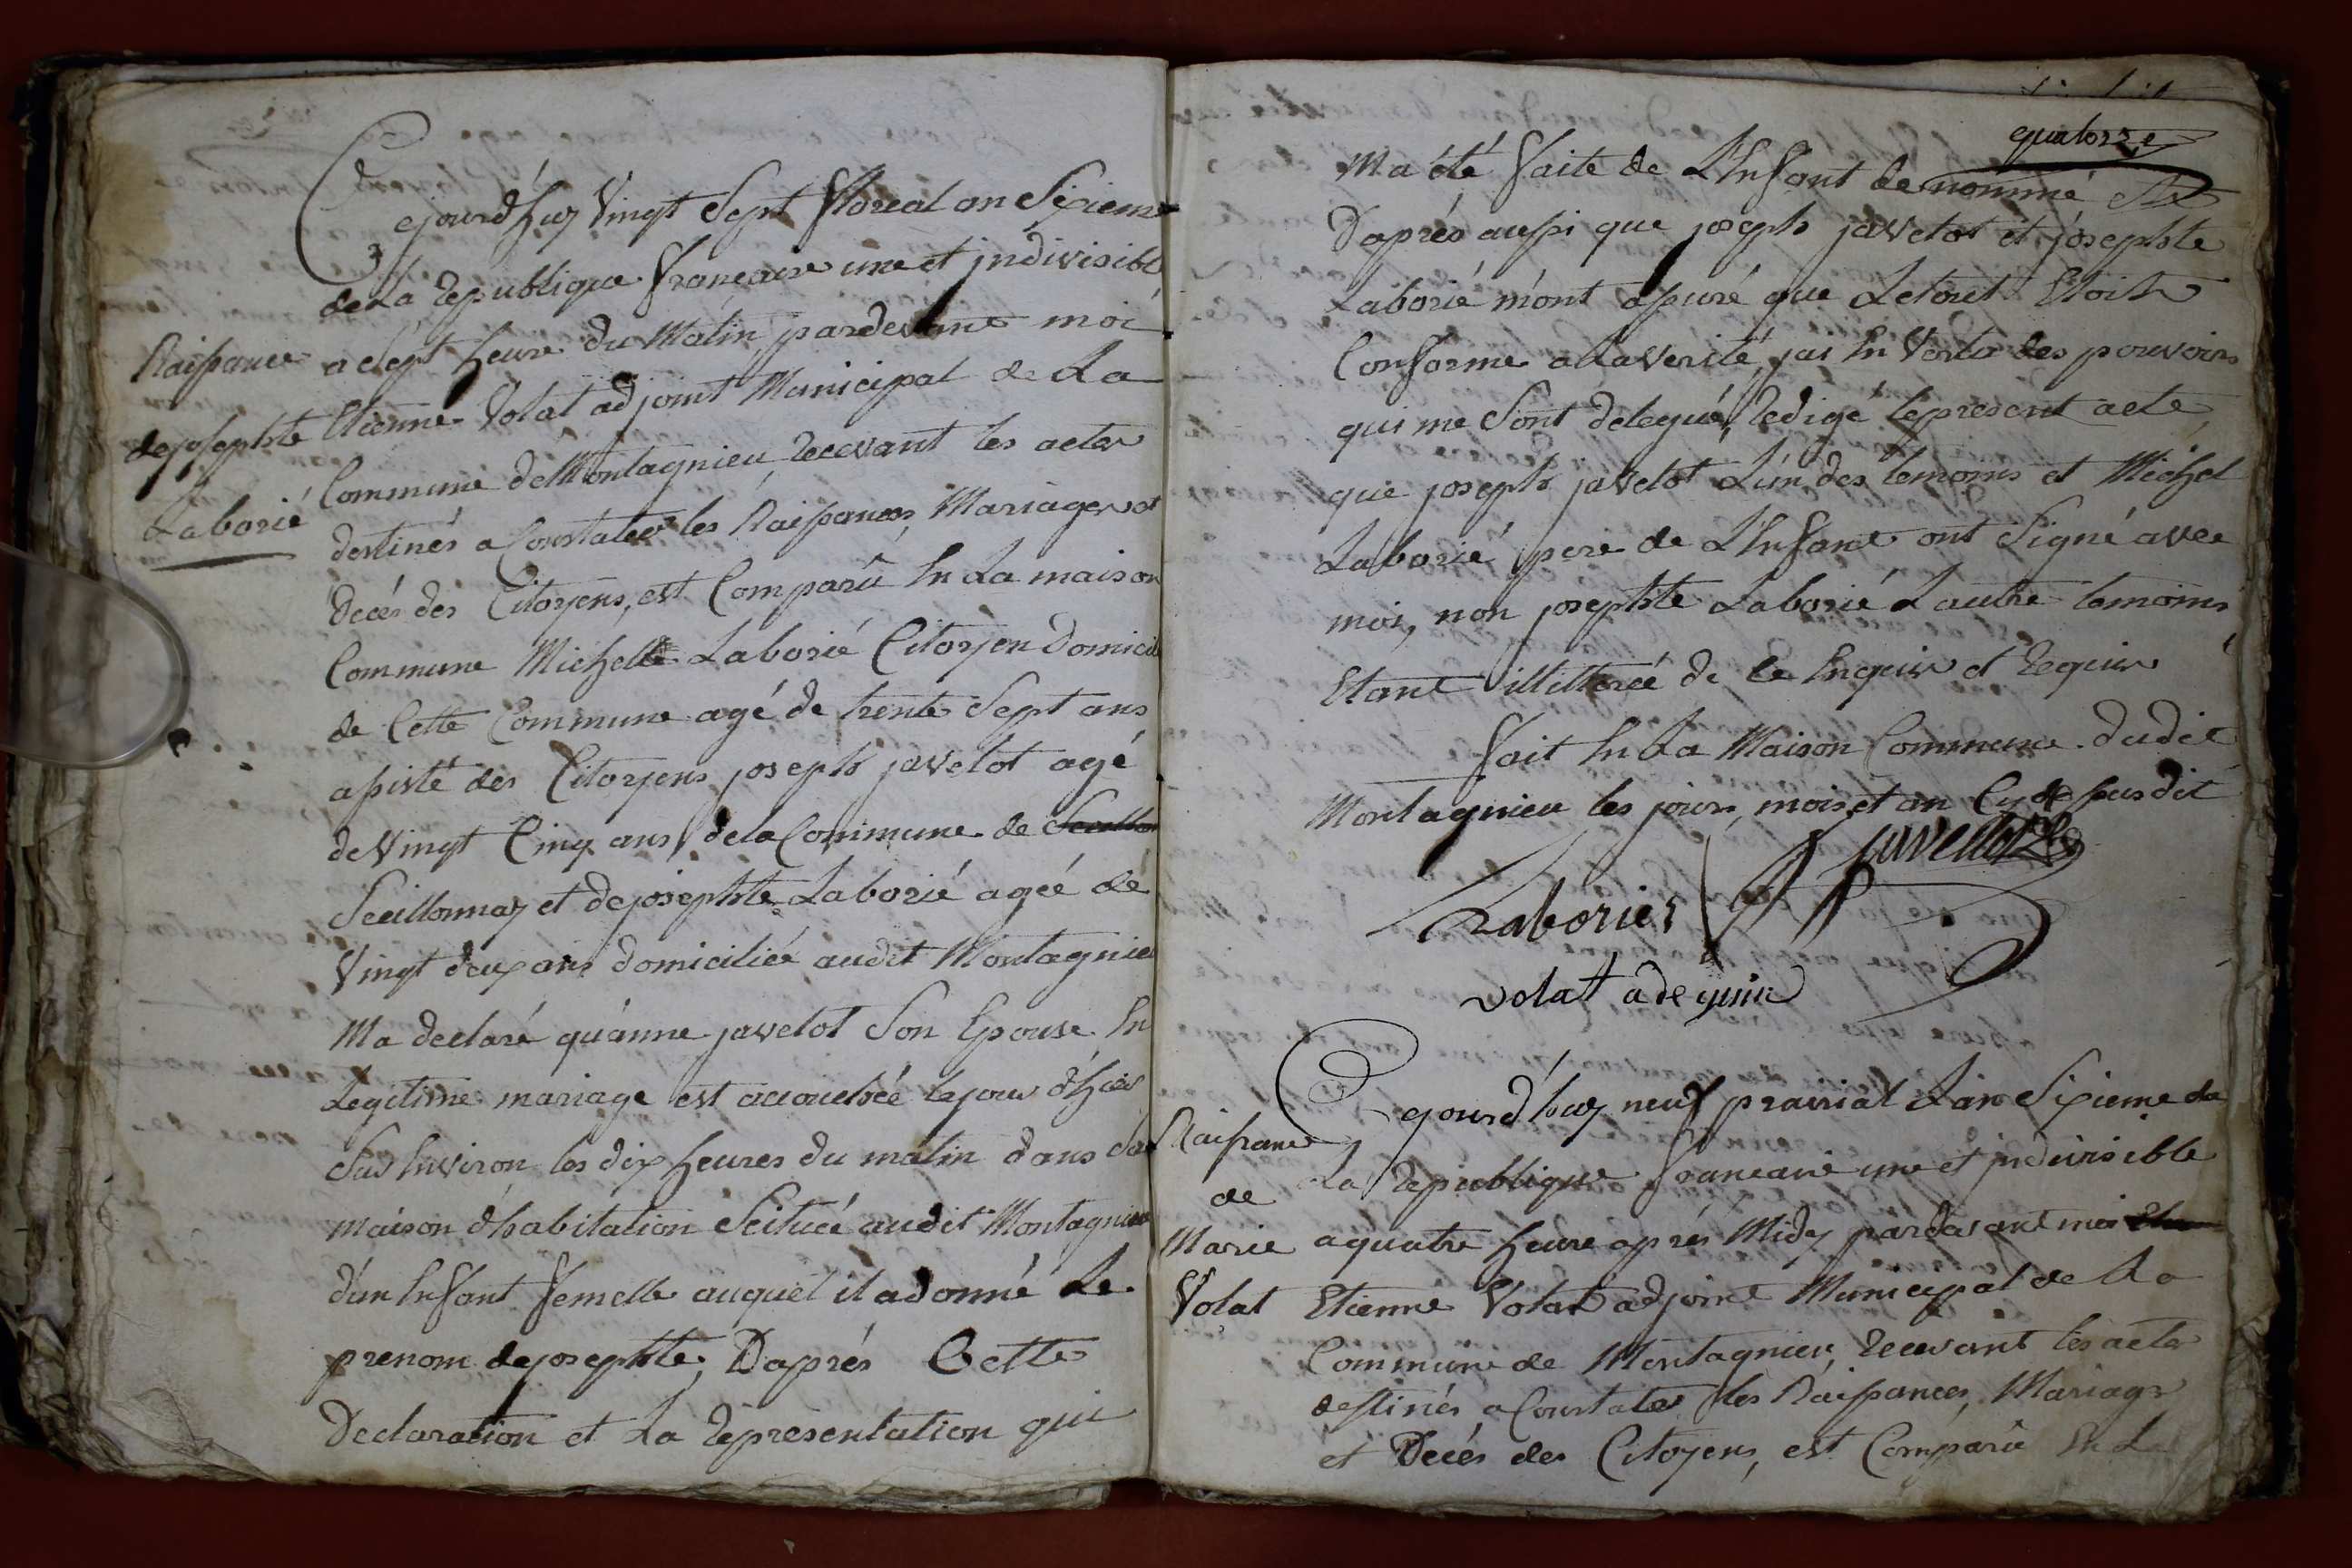 Cejourd'huy Vingt Sept floreal an Sixieme
de La Republique française une et jndivisible
Naissance
de josephte
Laborié
a Sept heure du Matin, pardevant moi
Etienne Volat adjoint Municipal de La
Commune de Montagnieu, Recevant les actes
destinés a Constater les Naissances, Mariages et
Decés des Citoyens, est Comparû En La maison
Commune Michelle Laborié Citoyen Domicilié
de Cette Commune agé de trente Sept ans
assisté des Citoyens joseph javelot agé
de Vingt Cinq ans, de la Commune de
Seeillonnas et de josephte Laborié agée de
Vingt deux ans domiciliée audit Montagnieu
Ma declaré qu'anne javelot Son Epouse En
Legitime mariage est accouchée le jour d'hier
Sus Environ les dix heures du matin dans Sa
maison d'habitation Scituée audit Montagnieu
d'un Enfant femelle auquel il a donné Le
prenom de josephte, D'aprés Cette
Declaration et La Representation qui
quatorze
M'a été faite de L'Enfant denommé Et
D'aprés aussi que joseph javelot et josephte
Laborié m'ont assuré que Letout Etoit
Conforme a La verité, jai En Vertu des pouvoirs
qui me Sont delegué, Redigé le present acte
que joseph javelot L'un des temoins et Michel
Laborié pere de L'Enfant ont Signé avec
moi, non josephte Laborié L'autre temoins
Etant illitterée de ce Enquis et Requis
fait En La Maison Commune dudit
Montagnieu les jours, mois et an Cy dessus dit
javellot
Laborier
volat adjoint
Cejourd'huy neuf prairial L'an Sixieme de
La Republique francaise une et jndivisible
Naissance
de
Marie
Volat
a quatre heure aprés Midy pardavant moi
Etienne Volat adjoint Municipal de La
Commune de Montagnieu, Recevant les actes
destinés a Constater les Naissances, Mariage
et Decés des Citoyens, est Comparû En La